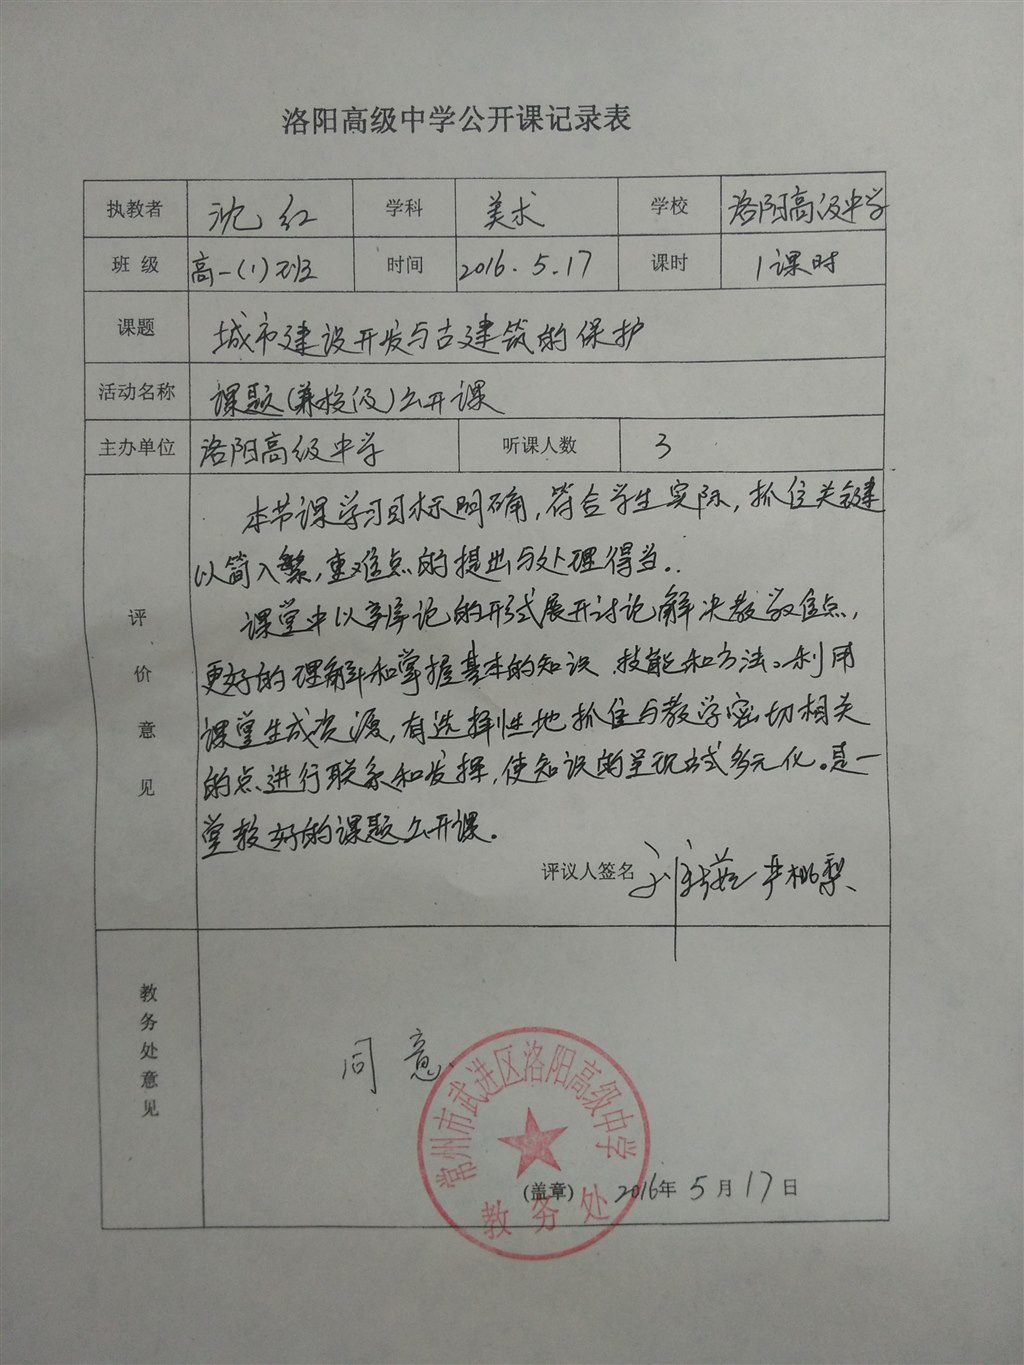 洛阳高级中学公开课记录表
执教者 沈红 学科 美术 学校 洛阳高级中学
班 级 高一(1)班 时间 2016.5.17 课时 1课时
课题 城市建设开发与古建筑的保护
活动名称 课题(兼校级)公开课
主办单位 洛阳高级中学 听课人数 3
评价意见
本节课学习目标明确,符合学生实际,抓住关键
以简入繁,重难点的提出与处理得当..
课堂中以辩论的形式展开讨论解决教学难点,
更好的理解和掌握基本的知识、技能和方法。利用
课堂生成资源,有选择性地抓住与教学密切相关
的点进行联系和发挥,使知识的呈现方式多元化。是一
堂较好的课题公开课。
评议人签名
教务处意见
同意
常州市武进区洛阳高级中学
(盖章) 2016年5月17日
教务处